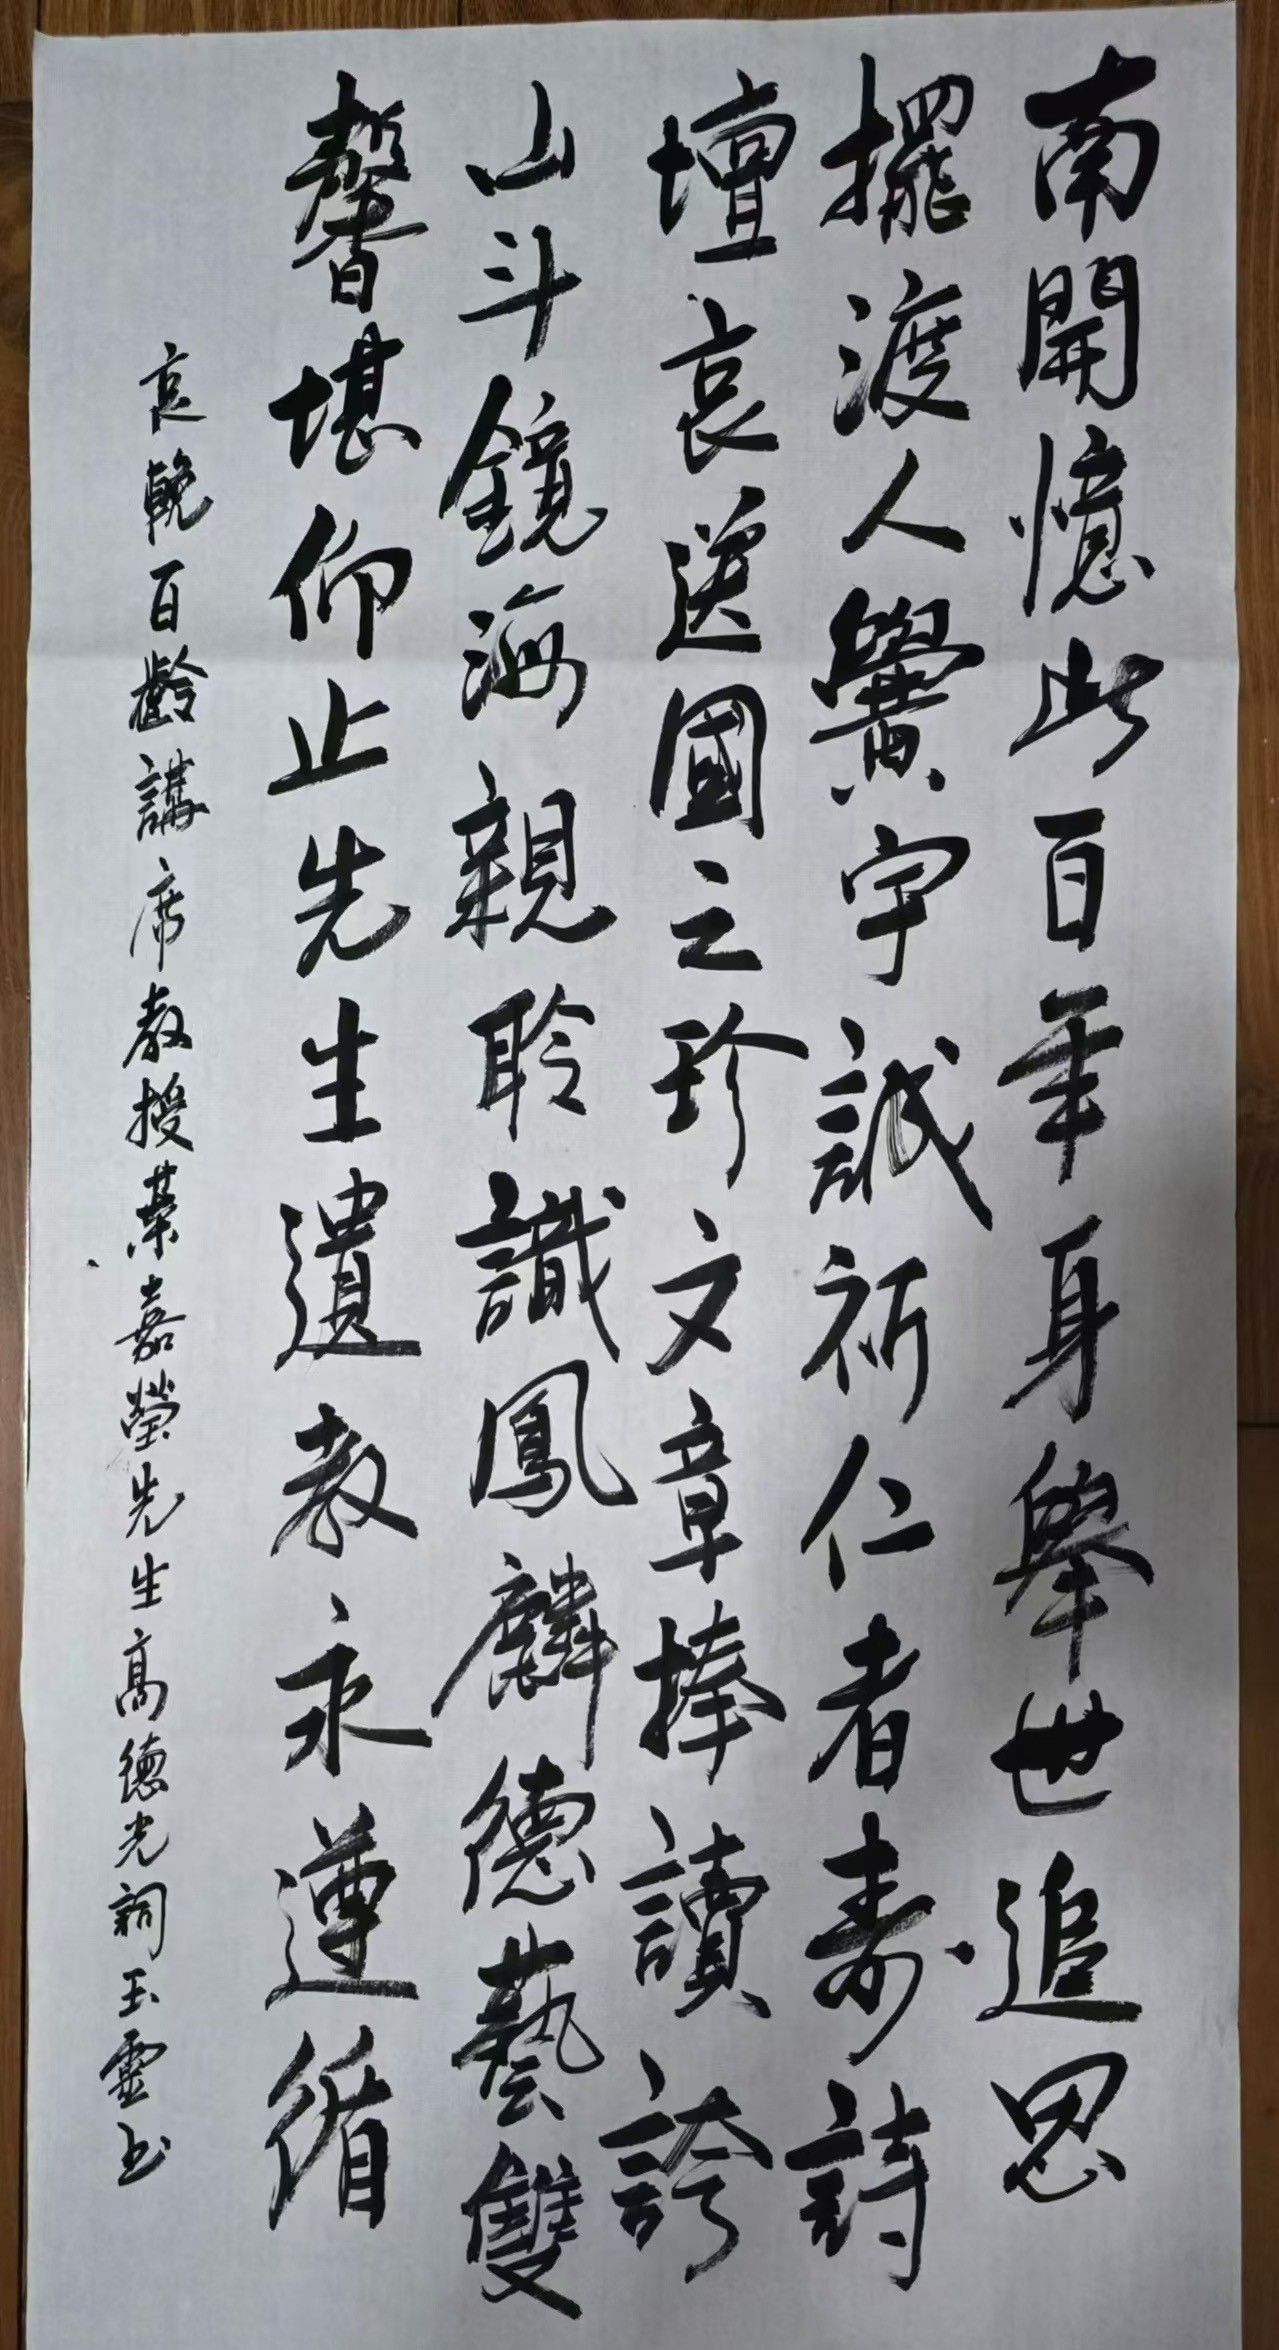 南開憶此百年身舉世追思
擺渡人黌宇誠祈仁者壽詩
壇哀送國之珍文章捧讀誇
山斗鏡海親聆識鳳麟德藝雙
馨堪仰止先生遺教永遵循
哀輓百齡講席教授葉嘉瑩先生高德光詞玉靈书